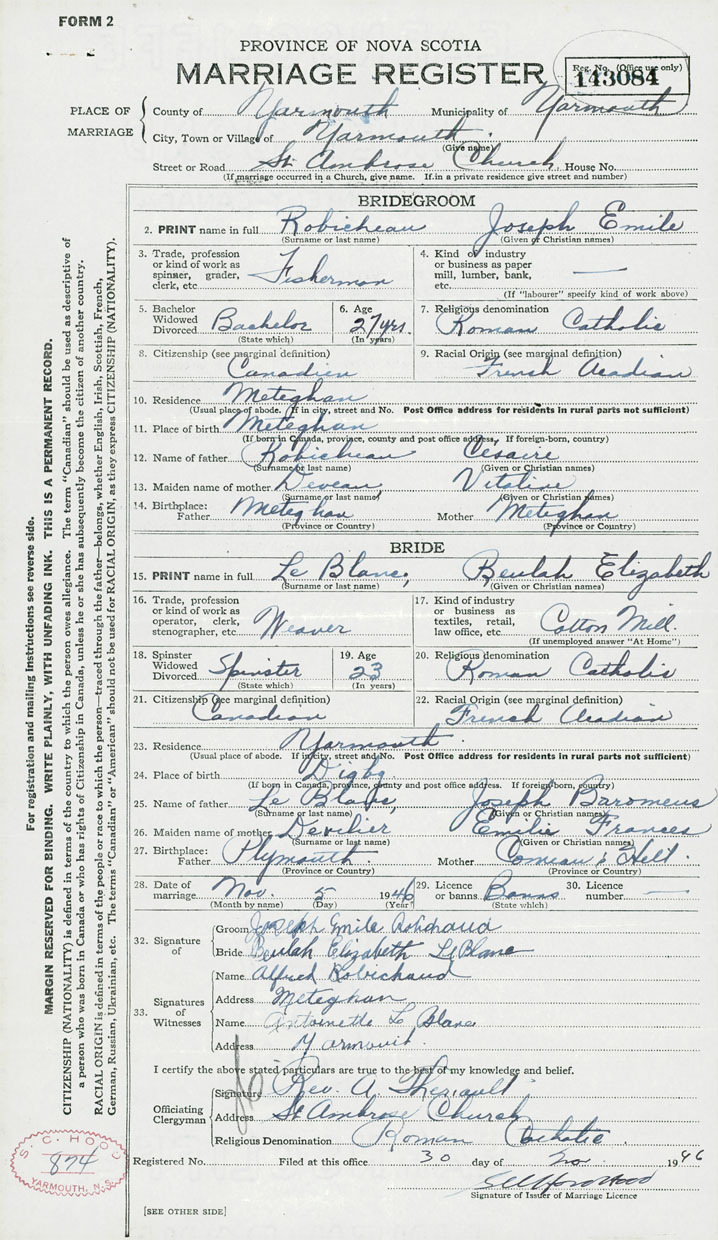 FORM 2
PROVINCE OF NOVA SCOTIA
MARRIAGE REGISTER
Reg. No. (Office use only)
143084
PLACE OF MARRIAGE
County of Yarmouth Municipality of Yarmouth
City, Town or Village of Yarmouth.
(Give name)
Street or Road St. Ambrose Church, House No.
(If marriage occurred in a Church, give name. If in a private residence give street and number)
BRIDEGROOM
2. PRINT name in full Robicheau Joseph Emile
(Surname or last name) (Given or Christian names)
3. Trade, profession or kind of work as spinner, grader, clerk, etc. Fisherman
4. Kind of industry or business as paper mill, lumber, bank, etc. —
(If "labourer" specify kind of work above)
5. Bachelor Widowed Divorced Bachelor
(State which)
6. Age 27 yrs.
(In years)
7. Religious denomination Roman Catholic
8. Citizenship (see marginal definition) Canadien
9. Racial Origin (see marginal definition) French Acadian
10. Residence Meteghan
(Usual place of abode. If in city, street and No. Post Office address for residents in rural parts not sufficient)
11. Place of birth Meteghan
(If born in Canada, province, county and post office address, If foreign-born, country)
12. Name of father Robicheau Cesaire
(Surname or last name) (Given or Christian names)
13. Maiden name of mother Deveau Vitaline
(Surname or last name) (Given or Christian names)
14. Birthplace: Father Meteghan Mother Meteghan
(Province or Country) (Province or Country)
BRIDE
15. PRINT name in full Le Blanc, Beulah Elizabeth
(Surname or last name) (Given or Christian names)
16. Trade, profession or kind of work as operator, clerk, stenographer, etc. Weaver
17. Kind of industry or business as textiles, retail, law office, etc. Cotton Mill.
(If unemployed answer "At Home")
18. Spinster Widowed Divorced Spinster
(State which)
19. Age 23
(In years)
20. Religious denomination Roman Catholic
21. Citizenship (see marginal definition) Canadian
22. Racial Origin (see marginal definition) French Acadian
23. Residence Yarmouth
(Usual place of abode. If in city, street and No. Post Office address for residents in rural parts not sufficient)
24. Place of birth Digby.
(If born in Canada, province, county and post office address. If foreign-born, country)
25. Name of father Le Blanc, Joseph Baromeus
(Surname or last name) (Given or Christian names)
26. Maiden name of mother Devilier Emilie Frances
(Surname or last name) (Given or Christian names)
27. Birthplace: Father Plymouth. Mother Comeau's Hill.
(Province or Country) (Province or Country)
28. Date of marriage Nov. 5 1946
(Month by name) (Day) (Year)
29. Licence or banns Banns
30. Licence number —
32. Signature of
Groom Joseph Emile Robichaud
Bride Beulah Elizabeth LeBlanc
33. Signatures of Witnesses
Name Alfred Robichaud
Address Meteghan
Name Antoinette Le Blanc
Address Yarmouth.
I certify the above stated particulars are true to the best of my knowledge and belief.
Officiating Clergyman
Signature Rev. A. Theriault
Address St Ambrose Church
Religious Denomination Roman Catholic.
Registered No. Filed at this office 30 day of No. 1946
Signature of Issuer of Marriage Licence
[SEE OTHER SIDE]
S. C. HOOD
874
YARMOUTH, N.S.
For registration and mailing Instructions see reverse side.
MARGIN RESERVED FOR BINDING. WRITE PLAINLY, WITH UNFADING INK. THIS IS A PERMANENT RECORD.
CITIZENSHIP (NATIONALITY) is defined in terms of the country to which the person owes allegiance. The term "Canadian" should be used as descriptive of
a person who was born in Canada or who has rights of Citizenship in Canada, unless he or she has subsequently become the citizen of another country.
RACIAL ORIGIN is defined in terms of the people or race to which the person—traced through the father—belongs, whether English, Irish, Scottish, French,
German, Russian, Ukrainian, etc. The terms "Canadian" or "American" should not be used for RACIAL ORIGIN, as they express CITIZENSHIP (NATIONALITY).